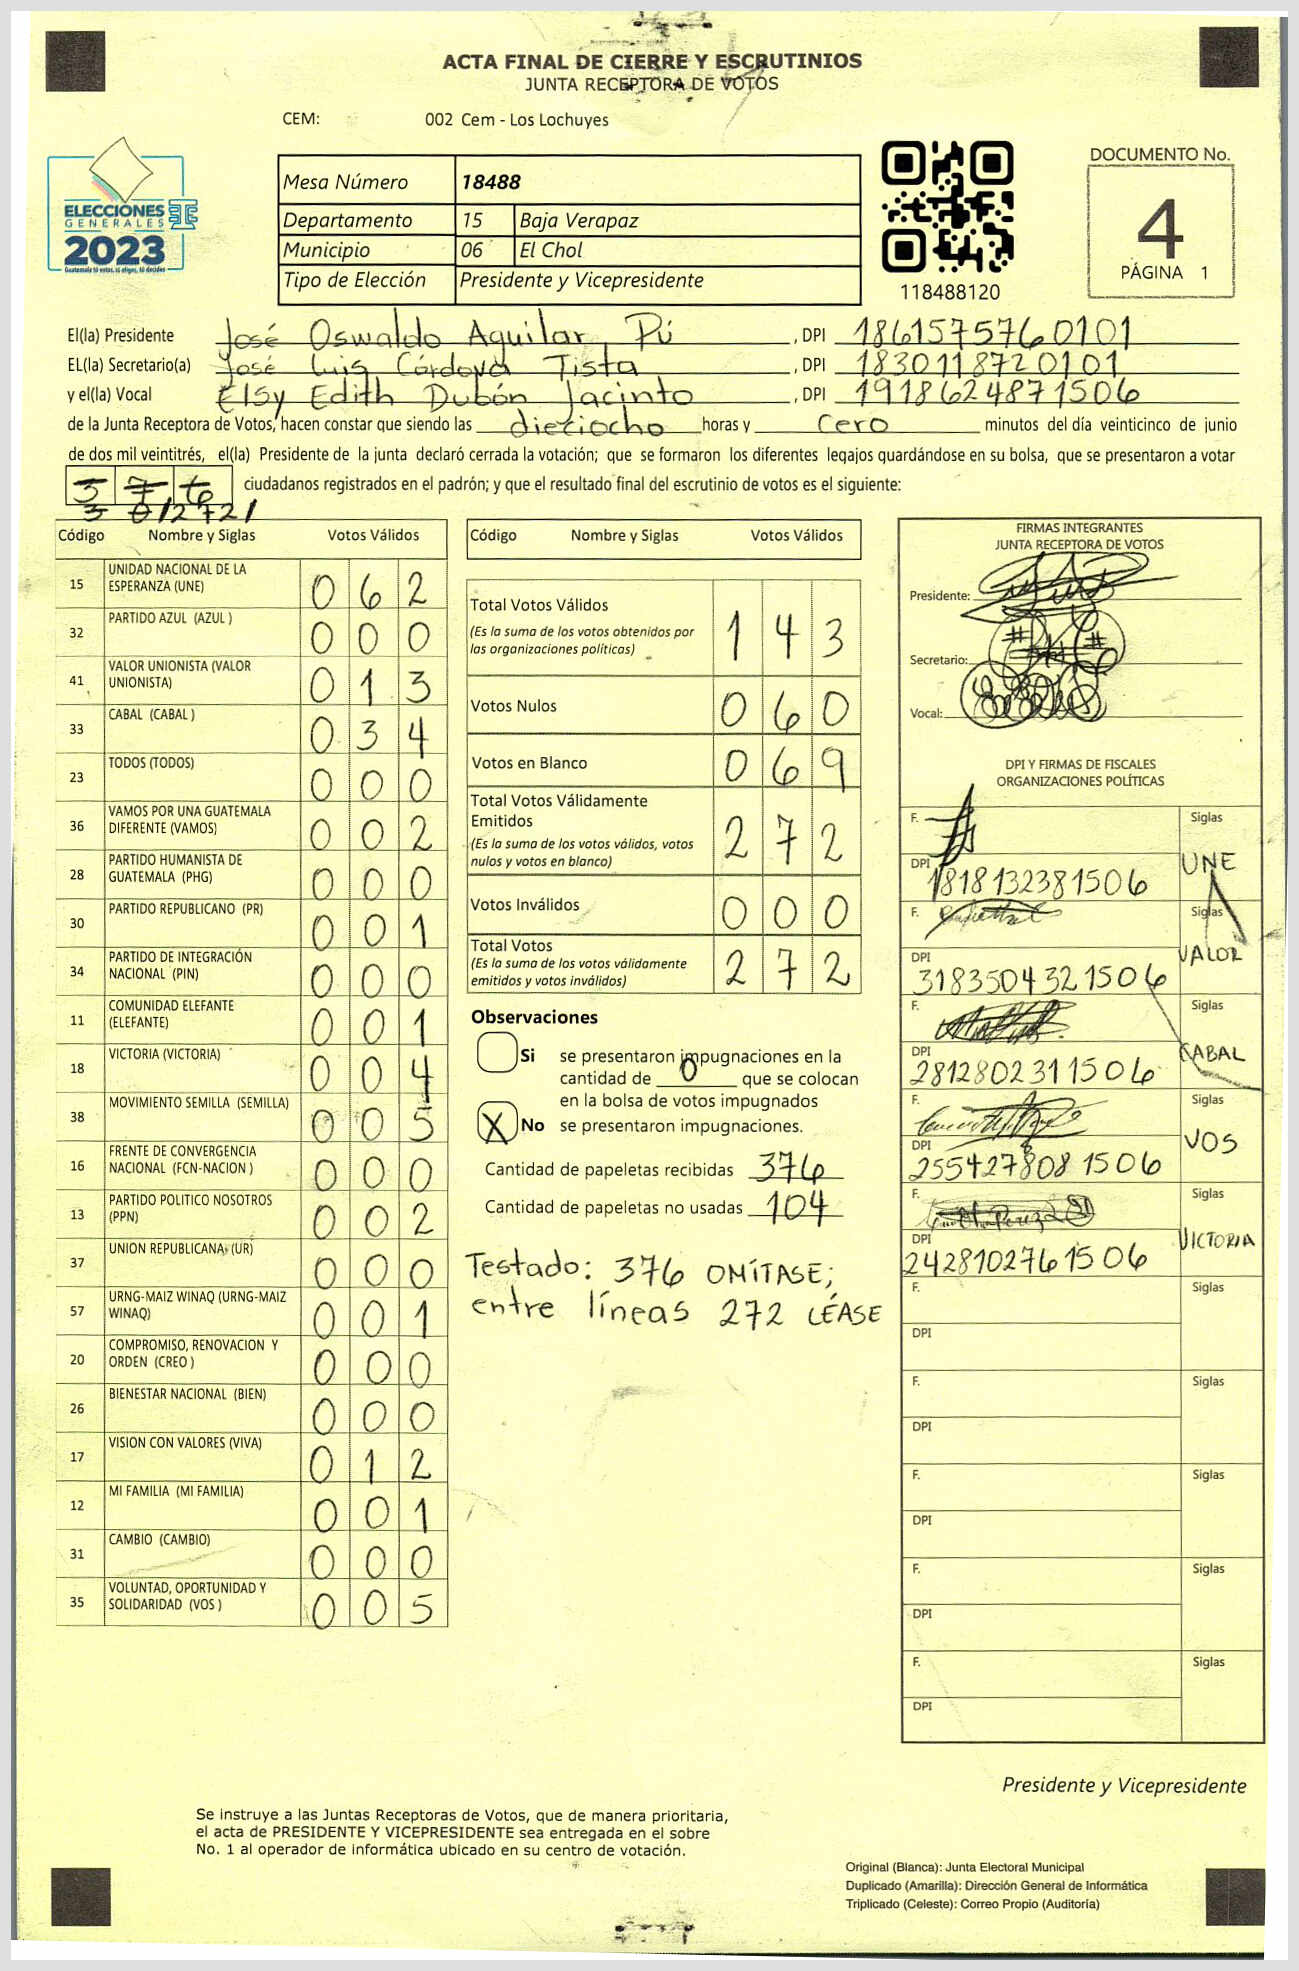 ACTA FINAL DE CIERRE Y ESCRUTINIOS
JUNTA RECEPTORA DE VOTOS
CEM: 002 Cem - Los Lochuyes
ELECCIONES
GENERALES
2023
Guatemala tú votas, tú eliges, tú decides
Mesa Número 18488
Departamento 15 Baja Verapaz
Municipio 06 El Chol
Tipo de Elección Presidente y Vicepresidente
118488120
DOCUMENTO No.
4
PÁGINA 1
El(la) Presidente José Oswaldo Aguilar Pú , DPI 1861575760101
EL(la) Secretario(a) José Luis Córdova Tista , DPI 1830118720101
y el(la) Vocal Elsy Edith Dubón Jacinto , DPI 1918624871506
de la Junta Receptora de Votos, hacen constar que siendo las dieciocho horas y cero minutos del día veinticinco de junio
de dos mil veintitrés, el(la) Presidente de la junta declaró cerrada la votación; que se formaron los diferentes legajos quardándose en su bolsa, que se presentaron a votar
3 7 6 ciudadanos registrados en el padrón; y que el resultado final del escrutinio de votos es el siguiente:
/272/
Código Nombre y Siglas Votos Válidos
15 UNIDAD NACIONAL DE LA ESPERANZA (UNE) 0 6 2
32 PARTIDO AZUL (AZUL ) 0 0 0
41 VALOR UNIONISTA (VALOR UNIONISTA) 0 1 3
33 CABAL (CABAL ) 0 3 4
23 TODOS (TODOS) 0 0 0
36 VAMOS POR UNA GUATEMALA DIFERENTE (VAMOS) 0 0 2
28 PARTIDO HUMANISTA DE GUATEMALA (PHG) 0 0 0
30 PARTIDO REPUBLICANO (PR) 0 0 1
34 PARTIDO DE INTEGRACIÓN NACIONAL (PIN) 0 0 0
11 COMUNIDAD ELEFANTE (ELEFANTE) 0 0 1
18 VICTORIA (VICTORIA) 0 0 4
38 MOVIMIENTO SEMILLA (SEMILLA) 0 0 5
16 FRENTE DE CONVERGENCIA NACIONAL (FCN-NACION ) 0 0 0
13 PARTIDO POLITICO NOSOTROS (PPN) 0 0 2
37 UNION REPUBLICANA (UR) 0 0 0
57 URNG-MAIZ WINAQ (URNG-MAIZ WINAQ) 0 0 1
20 COMPROMISO, RENOVACION Y ORDEN (CREO ) 0 0 0
26 BIENESTAR NACIONAL (BIEN) 0 0 0
17 VISION CON VALORES (VIVA) 0 1 2
12 MI FAMILIA (MI FAMILIA) 0 0 1
31 CAMBIO (CAMBIO) 0 0 0
35 VOLUNTAD, OPORTUNIDAD Y SOLIDARIDAD (VOS ) 0 0 5
Código Nombre y Siglas Votos Válidos
Total Votos Válidos 1 4 3
(Es la suma de los votos obtenidos por
las organizaciones políticas)
Votos Nulos 0 6 0
Votos en Blanco 0 6 9
Total Votos Válidamente
Emitidos 2 7 2
(Es la suma de los votos válidos, votos
nulos y votos en blanco)
Votos Inválidos 0 0 0
Total Votos 2 7 2
(Es la suma de los votos válidamente
emitidos y votos inválidos)
Observaciones
Si se presentaron impugnaciones en la
cantidad de 0 que se colocan
en la bolsa de votos impugnados
X No se presentaron impugnaciones.
Cantidad de papeletas recibidas 376
Cantidad de papeletas no usadas 104
Testado: 376 OMÍTASE;
entre líneas 272 LÉASE
FIRMAS INTEGRANTES
JUNTA RECEPTORA DE VOTOS
Presidente:
Secretario:
Vocal:
DPI Y FIRMAS DE FISCALES
ORGANIZACIONES POLÍTICAS
F. Siglas
DPI 1818132381506 UNE
F. Siglas
DPI 3183504321506 VALOR
F. Siglas
DPI 2812802311506 CABAL
F. Siglas
DPI 2554278081506 VOS
F. Siglas
DPI 2428102761506 VICTORIA
F. Siglas
DPI
F. Siglas
DPI
F. Siglas
DPI
F. Siglas
DPI
F. Siglas
DPI
Presidente y Vicepresidente
Se instruye a las Juntas Receptoras de Votos, que de manera prioritaria,
el acta de PRESIDENTE Y VICEPRESIDENTE sea entregada en el sobre
No. 1 al operador de informática ubicado en su centro de votación.
Original (Blanca): Junta Electoral Municipal
Duplicado (Amarilla): Dirección General de Informática
Triplicado (Celeste): Correo Propio (Auditoría)